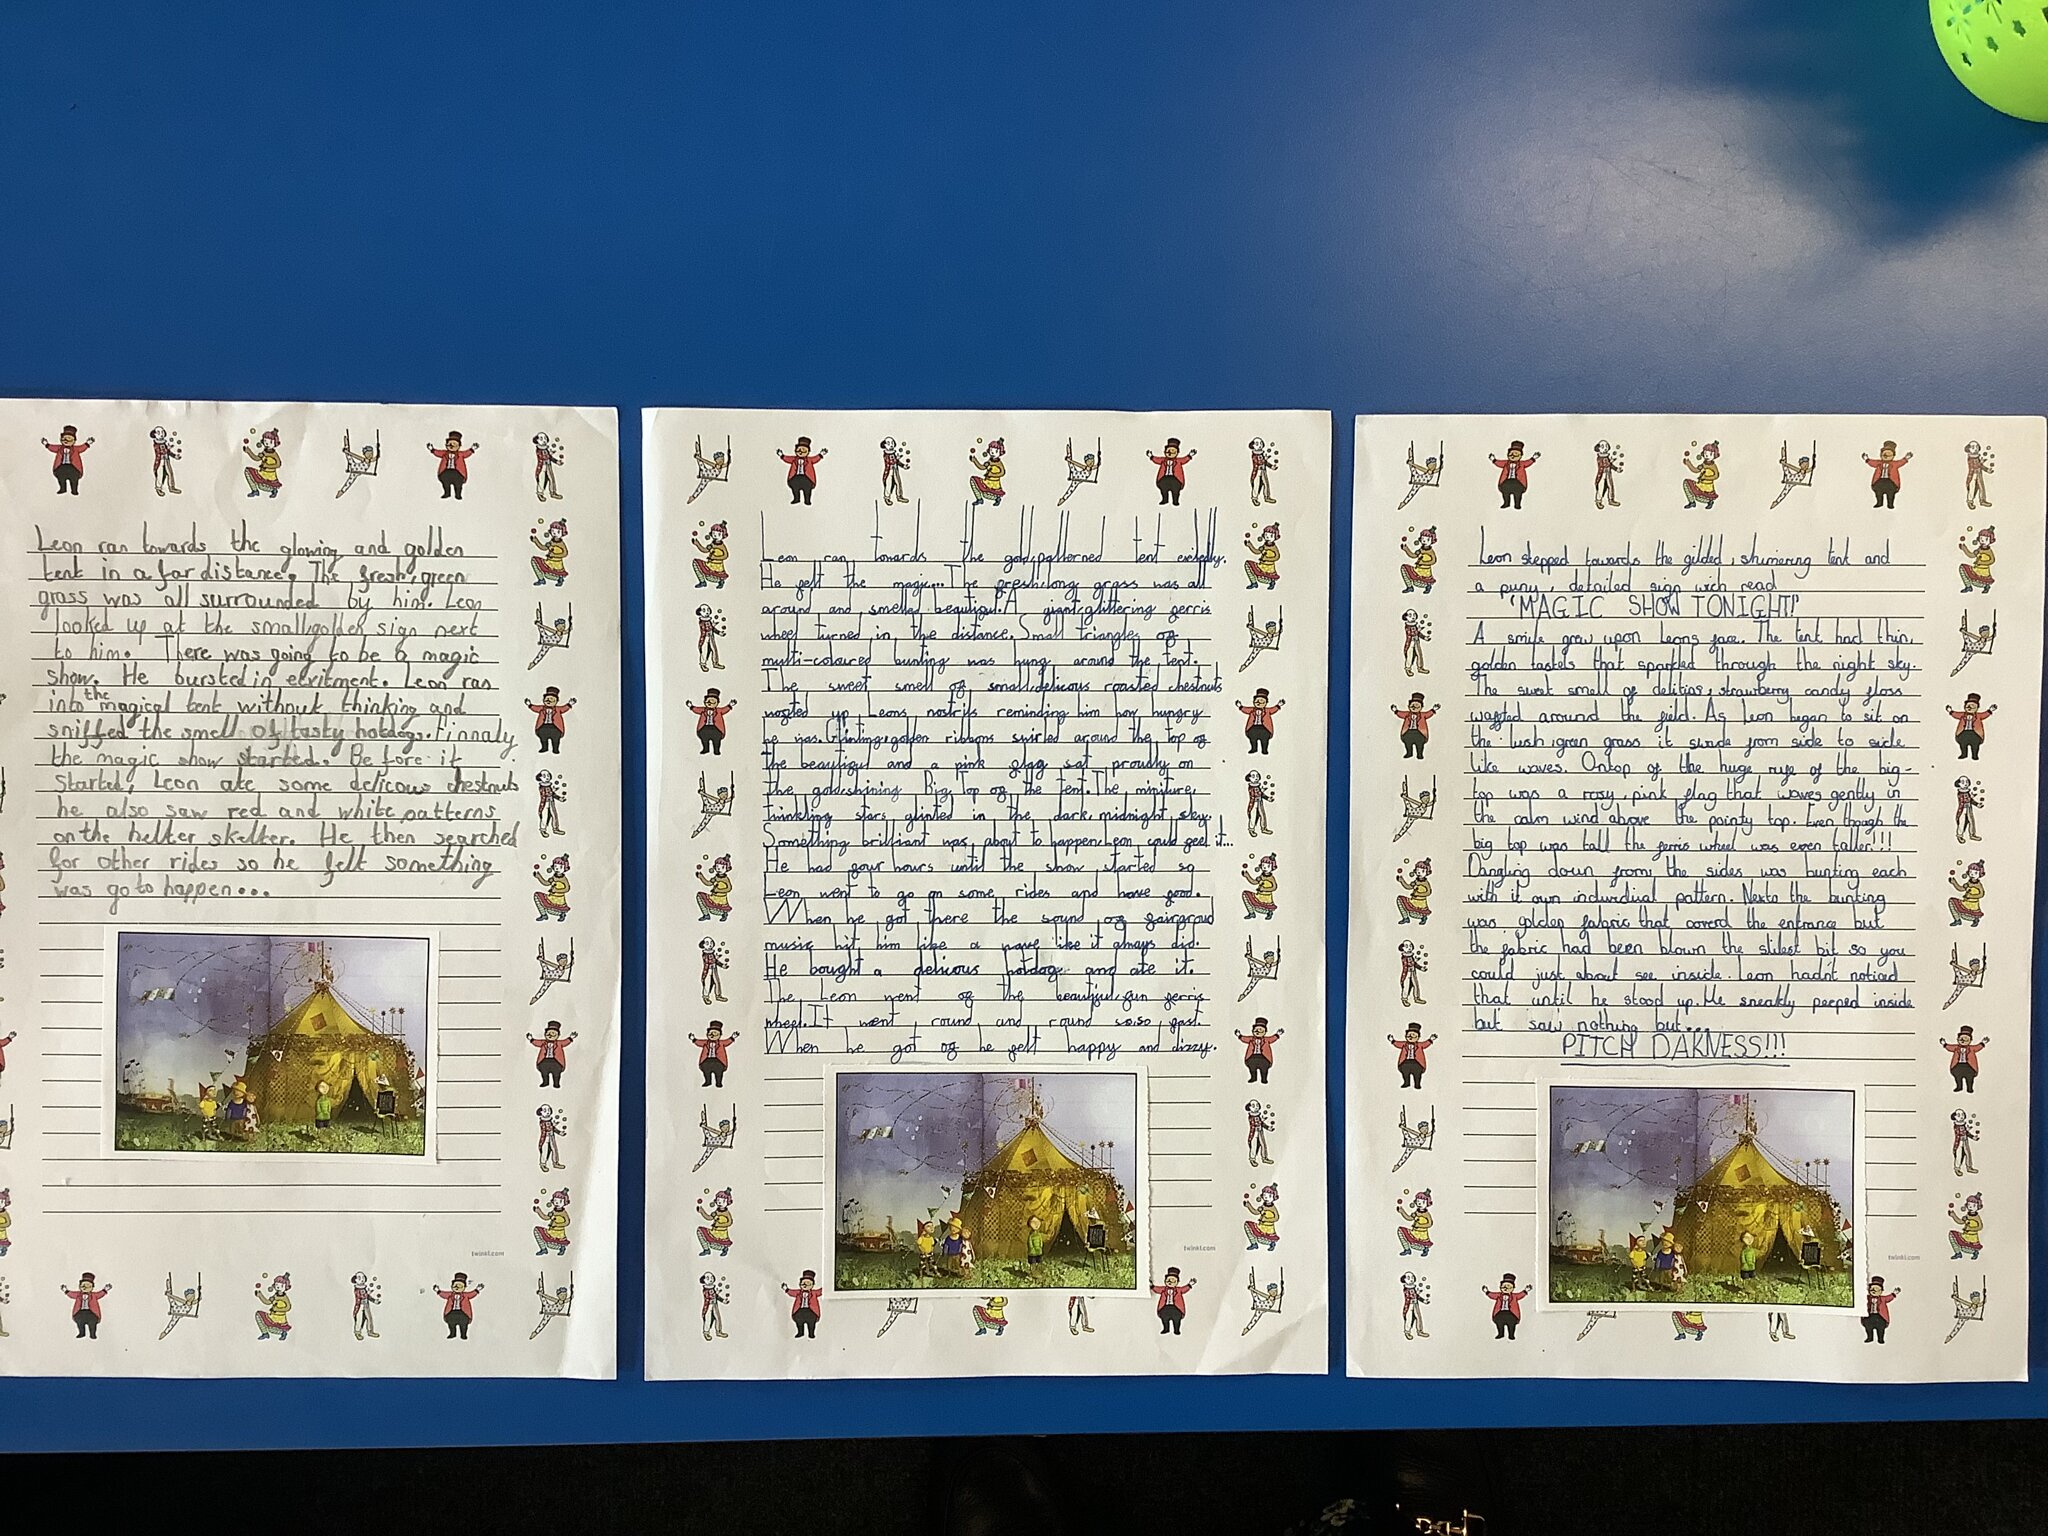 Leon ran towards the glowing and golden
tent in a far distance. The fresh, green
grass was all surrounded by him. Leon
looked up at the small, golden sign next
to him. There was going to be a magic
show. He bursted in exritment. Leon ran
into the magical tent without thinking and
sniffed the smell of tasty hotdogs. Finnaly
the magic show started. Be fore it
started, Leon ate some delicous chestnuts
he also saw red and white patterns
on the helter skelter. He then searched
for other rides so he felt something
was go to happen...
twinkl.com
Leon ran towards the gold, patterned tent exitedly.
He felt the magic... The fresh, long grass was all
around and smelled beautiful. A giant, glittering ferris
wheel turned in the distance. Small triangles of
multi-coloured bunting was hung around the tent.
The sweet smell of small, delicous roasted chestnuts
wafted up Leons nostrils reminding him how hungry
he was. Glinting, golden ribbons swirled around the top of
the beautiful and a pink flag sat proudly on
the gold, shining Big Top of the tent. The miniture,
twinkling stars glinted in the dark, midnight sky.
Something brilliant was about to happen, Leon could feel it...
He had four hours until the show started so
Leon went to go on some rides and have food.
When he got there the sound of fairground
music hit him like a wave like it always did.
He bought a delicous hotdog and ate it.
The Leon went of the beautiful, fun ferris
wheel. It went round and round so, so fast.
When he got of he felt happy and dizzy.
twinkl.com
Leon stepped towards the gilded, shimering tent and
a puny, detailed sign wich read
'MAGIC SHOW TONIGHT!'
A smile grew upon Leons face. The tent had thin,
golden tastels that sparkled through the night sky.
The sweet smell of delitios, strawberry candy floss
wafted around the field. As Leon began to sit on
the lush, green grass it swade from side to side
like waves. Ontop of the huge rufe of the big-
top was a rosy, pink flag that waves gently in
the calm wind above the pointy top. Even though the
big top was tall the ferris wheel was even taller!!!
Dangling down from the sides was bunting each
with it own individual pattern. Nexto the bunting
was golden fabric that coverd the entrance but
the fabric had been blown the slitest bit so you
could just about see inside. Leon hadn't noticed
that until he stood up. He sneakly peeped inside
but saw nothing but...
PITCH DAKNESS!!!
twinkl.com